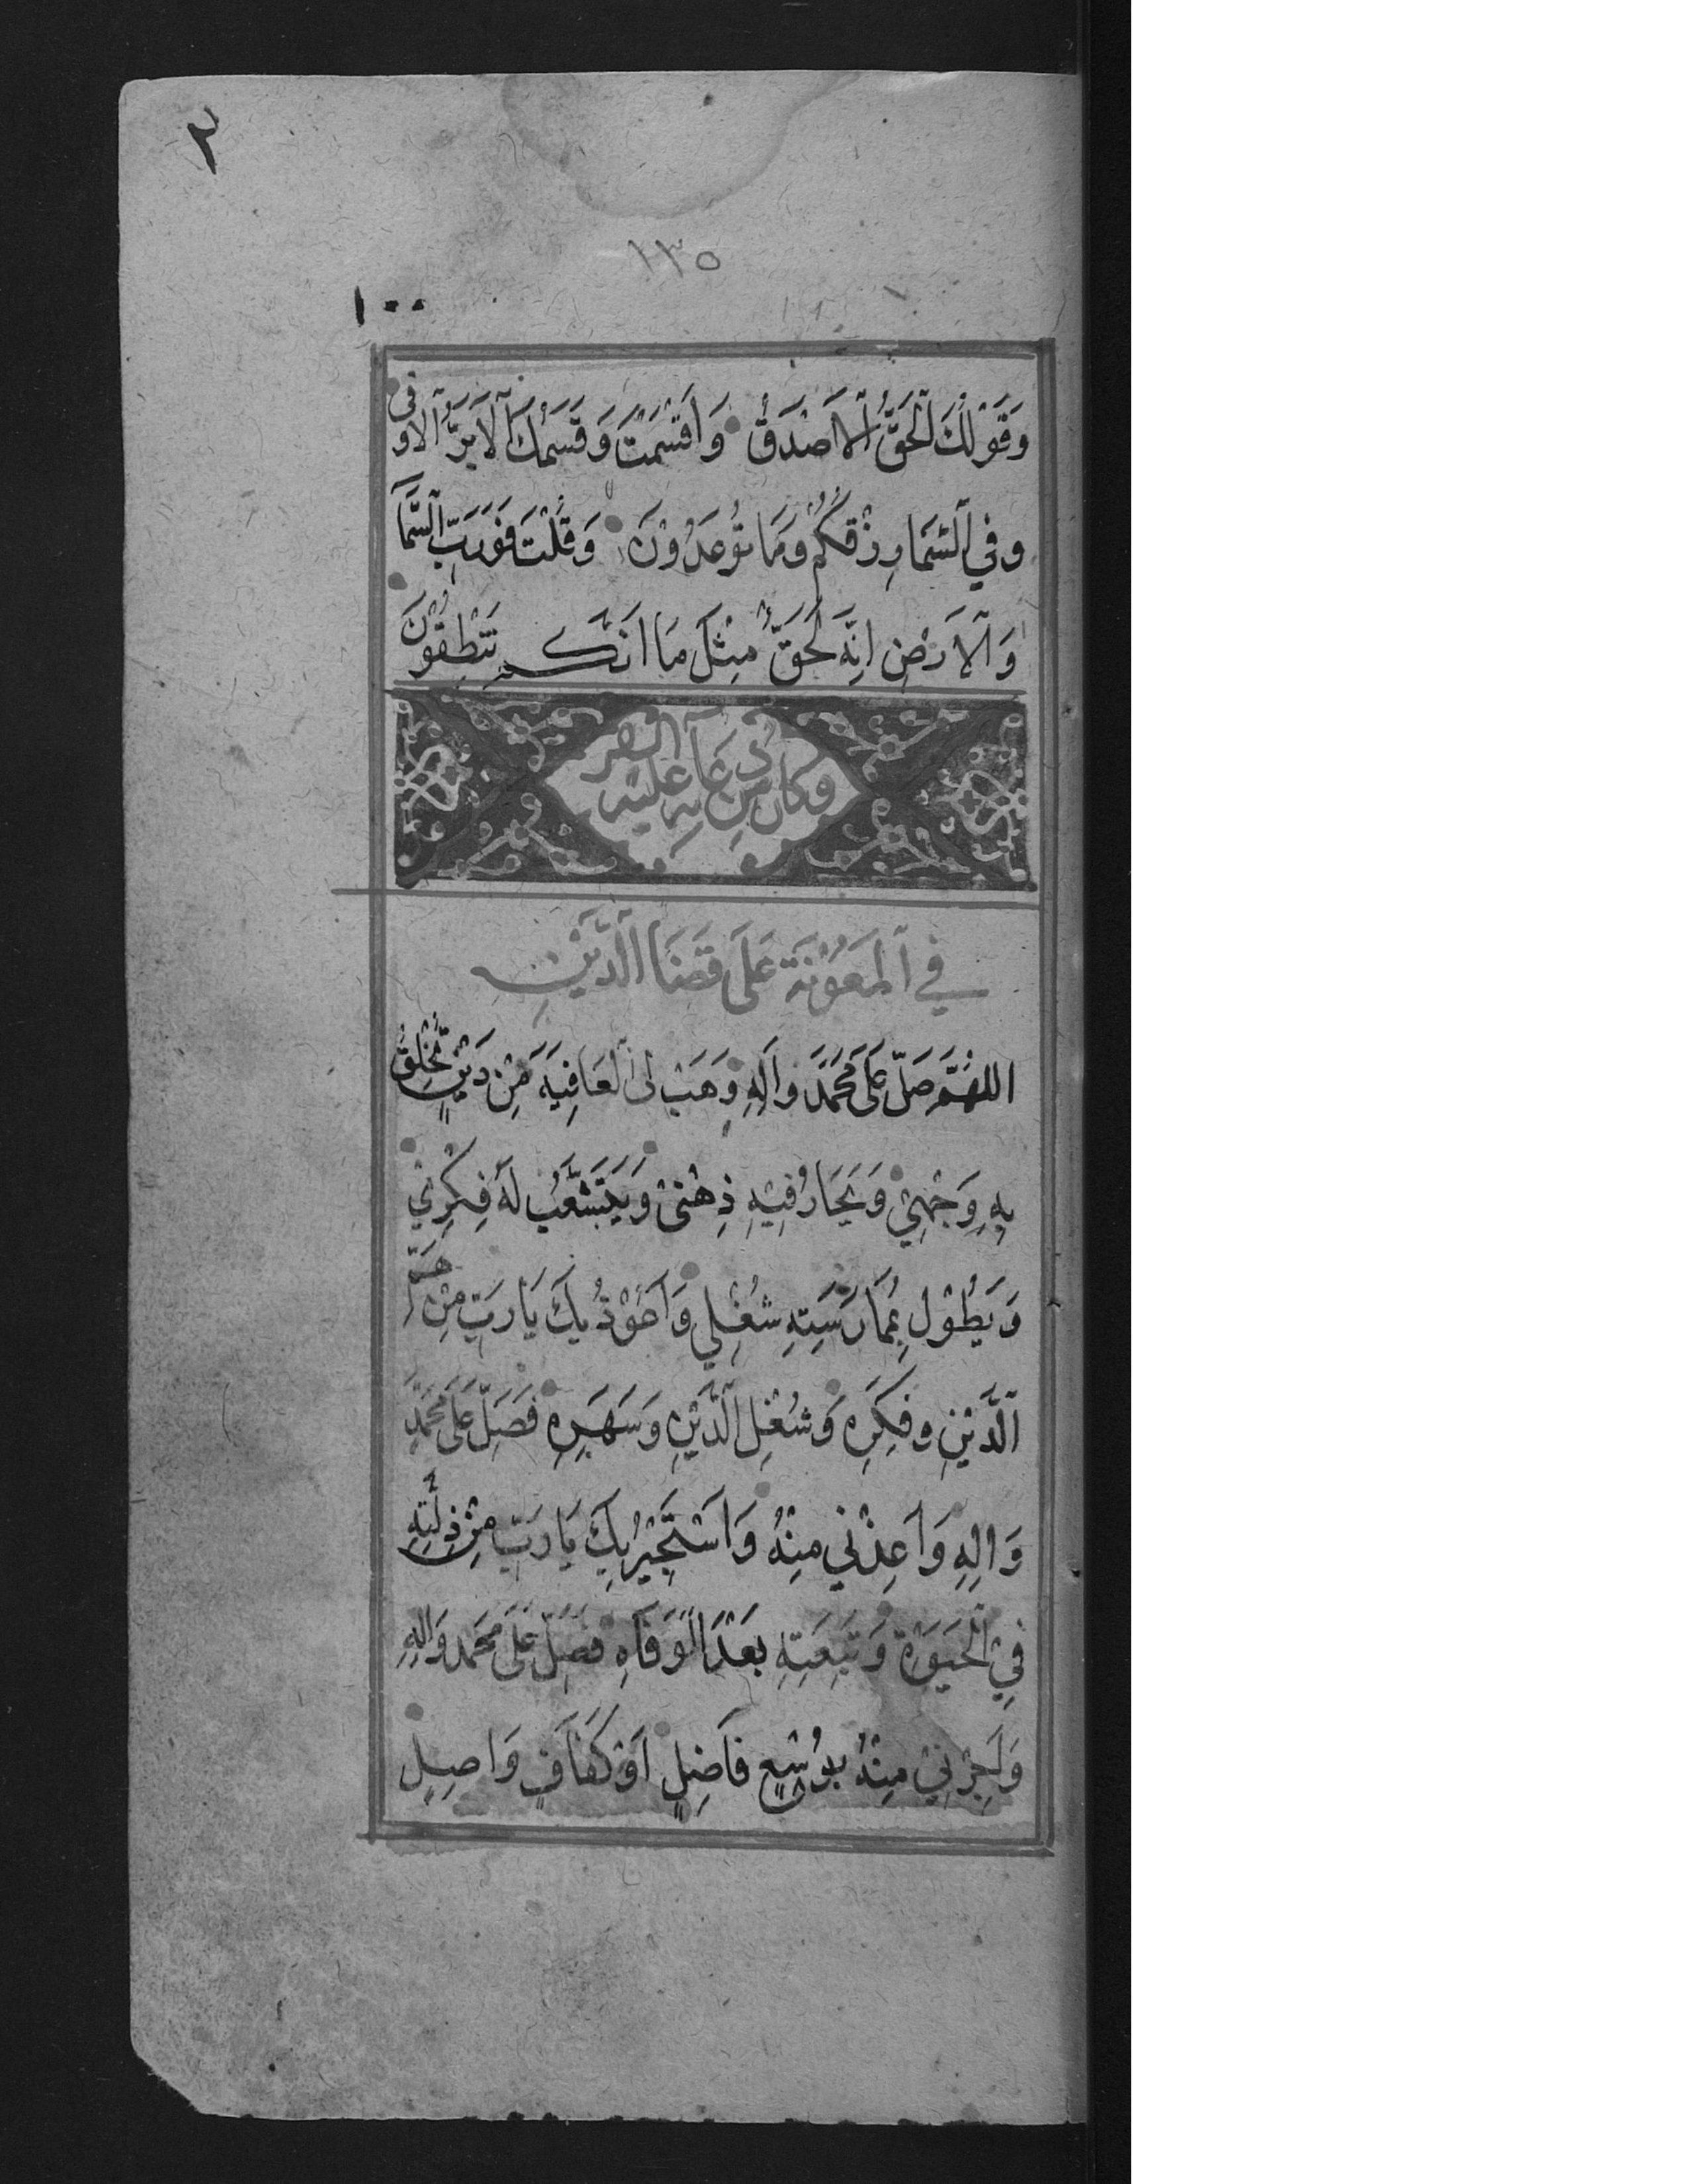 ٢
١٣٥
١٠٠
وَقَوْلُكَ اَلْحَقُّ اَلْاَصْدَقُ وَاَقْسَمْتَ وَقَسَمُكَ اَلْاَبَرُّ اَلْاَوْفٰى
وَفِي اَلسَّمَاءِ رِزْقُكُمْ وَمَا تُوعَدُوْنَ وَقُلْتَ فَوَرَبِّ اَلسَّمَآءِ
وَاَلْاَرْضِ اِنَّهُ لَحَقٌّ مِثْلَ مَا اَنَّكُمْ تَنْطِقُوْنَ
وَكَانَ مِنْ دُعَآئِهِ عَلَيْهِ
فِي اَلْمَعُوْنَةِ عَلَى قَضَآءِ اَلدَّيْنِ
اَللّٰهُمَّ صَلِّ عَلٰى مُحَمَّدٍ وَاٰلِهِ وَهَبْ لِىَ اَلْعَافِيَةَ مِنْ دَيْنٍ تُخْلِقُ
بِهِ وَجْهِيْ وَيَحَارُ فِيْهِ ذِهْنِىْ وَيَتَشَعَّبُ لَهُ فِكْرِيْ
وَيَطُوْلُ بِمُمَارَسَتِهِ شُغْلِي وَاَعُوْذُ بِكَ يَا رَبِّ مِنْ هَمِّ
اَلدَّيْنِ وَفِكْرِهِ وَشُغْلِ اَلدَّيْنِ وَسَهَرِهِ فَصَلِّ عَلٰى مُحَمَّدٍ
وَاٰلِهِ وَاَعِذْنِي مِنْهُ وَاَسْتَجِيْرُ بِكَ يَا رَبِّ مِنْ ذِلَّتِهِ
فِيْ اَلْحَيٰوةِ وَتَبِعَتِهِ بَعْدَ اَلْوَفَاةِ فَصَلِّ عَلٰى مُحَمَّدٍ وَاٰلِهِ
وَاَجِرْنِيْ مِنْهُ بِوُسْعٍ فَاضِلٍ اَوْ كَفَافٍ وَاصِلٍ